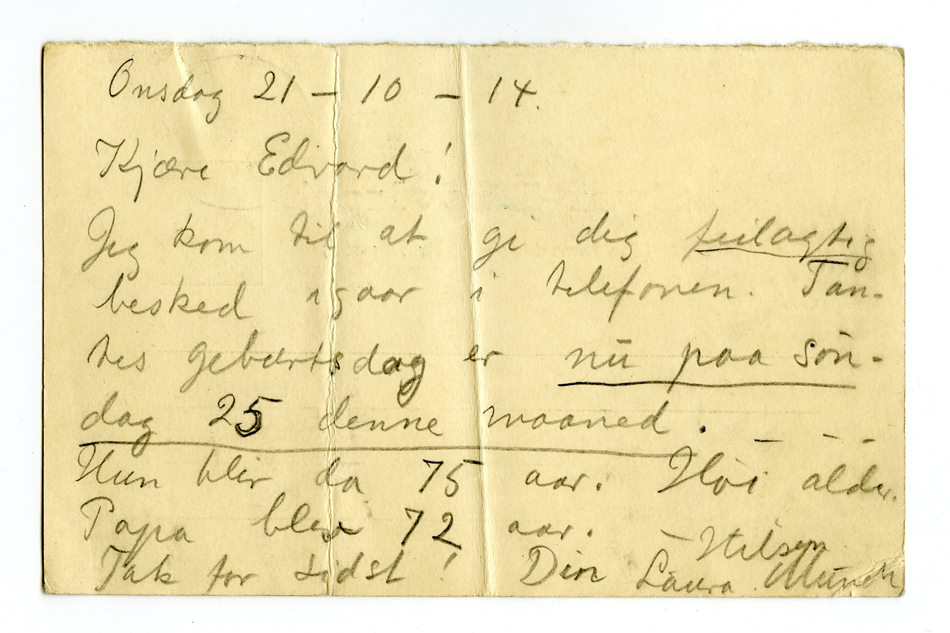 Onsdag 21 – 10 – 14.
Kjære Edvard!
Jeg kom til at gi dig feilagtig
besked igaar i telefonen. Tan-
tes gebærtsdag er nu paa søn-
dag 25 denne maaned. – – –
Hun blir da 75 aar. Høi alder.
Papa blev 72 aar. – Hilsen
Tak for sidst! Din Laura Munch